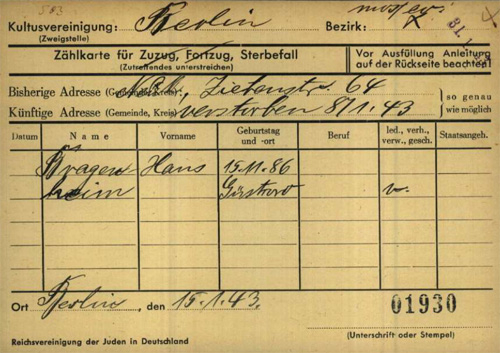 583
Kultusvereinigung: Berlin Bezirk:
(Zweigstelle)
Zählkarte für Zuzug, Fortzug, Sterbefall
(Zutreffendes unterstreichen)
Vor Ausfüllung Anleitung
auf der Rückseite beachten!
Bisherige Adresse (Gemeinde, Kreis) 64
Künftige Adresse (Gemeinde, Kreis) verstorben 8/1.43
so genau
wie möglich
Datum Name Vorname Geburtstag und -ort Beruf led., verh., verw., gesch. Staatsangeh.
Bragen Hans 15.11.86
heim Güstrow v.
Ort Berlin, den 15.1.43.
01930
(Unterschrift oder Stempel)
Reichsvereinigung der Juden in Deutschland